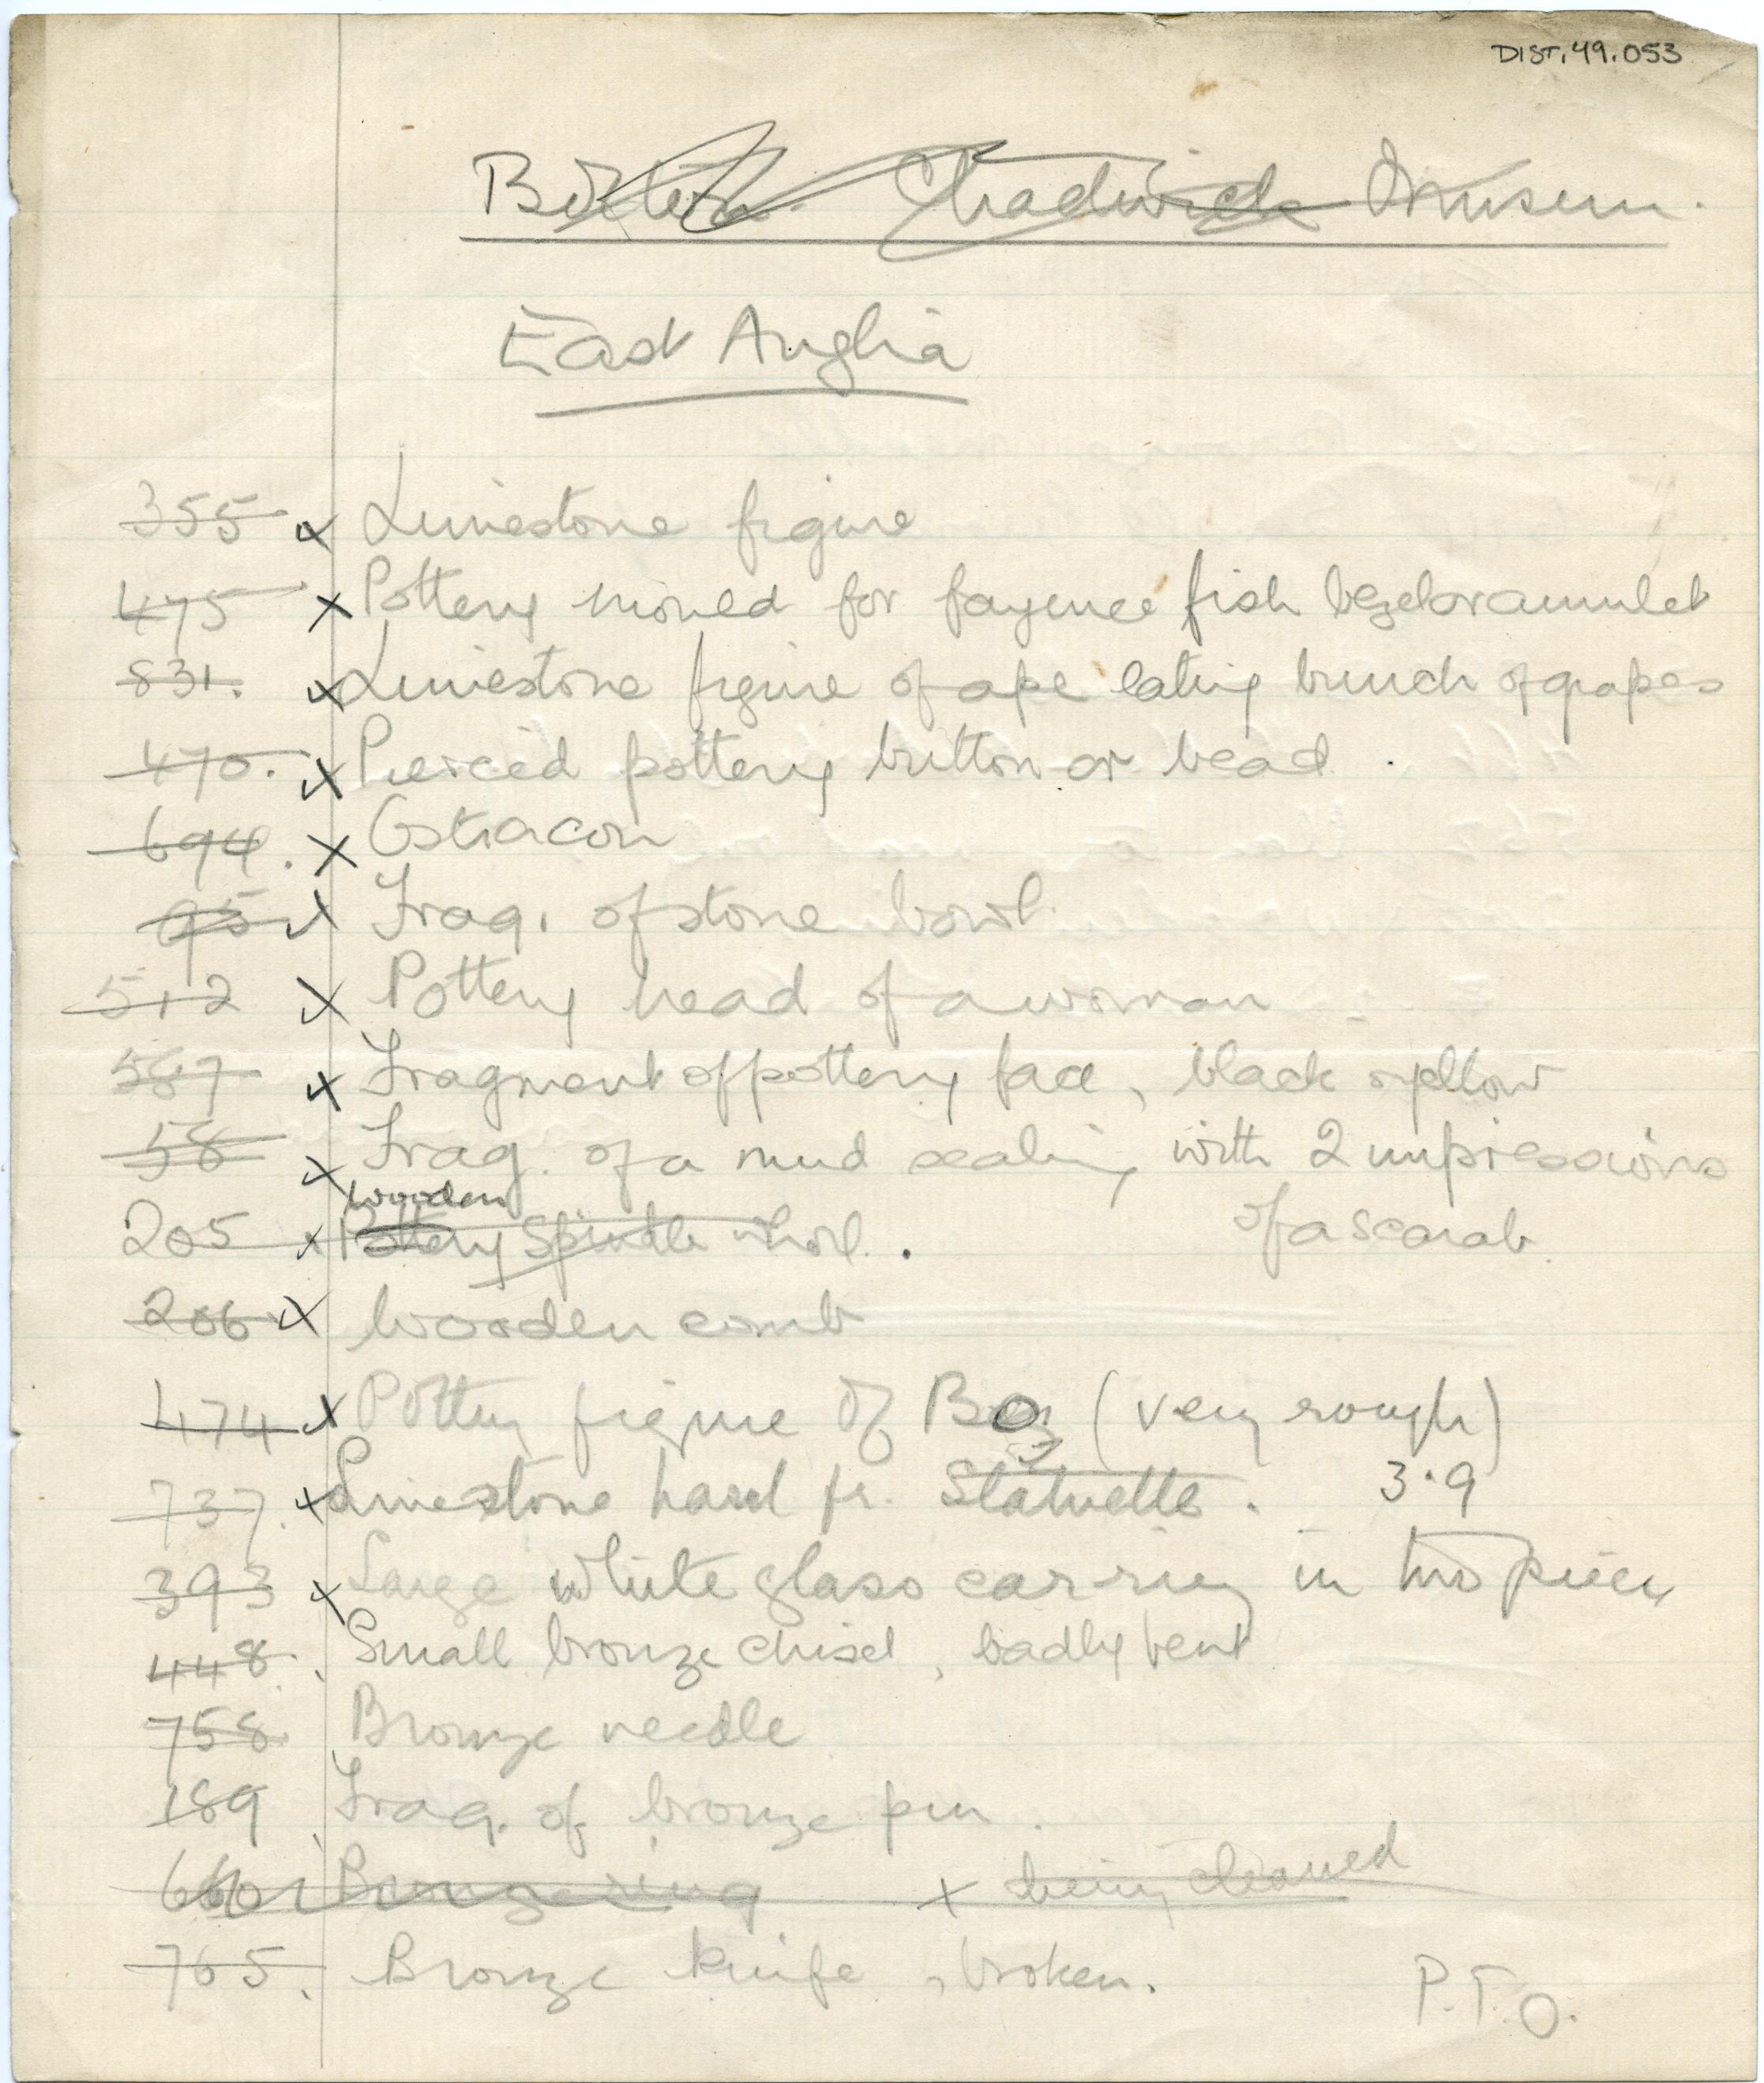 DIST.49.053
Bolton. Chadwick Museum.
East Anglia
355 x Limestone figure
475 x Pottery mould for fayence fish bezel or amulet
831. x Limestone figure of ape eating bunch of grapes
470. x Pierced pottery button or bead.
694. x Ostracon
95 x Frag. of stone bowl.
512 x Pottery head of a woman
587 x Fragment of pottery face, black & yellow
58 x Frag. of a mud sealing with 2 impressions
of a scarab.
wooden
205 x Pottery Spindle whorl.
206 x Wooden comb
474 x Pottery figure of (very rough)
737. x Limestone hand fr. Statuette. 3.9
393 x Large white glass earring in two pieces
448. Small bronze chisel, badly bent
758. Bronze needle
189 Frag. of bronze pin.
660 Bronze ring x being cleaned
765. Bronze knife, broken.
P.T.O.